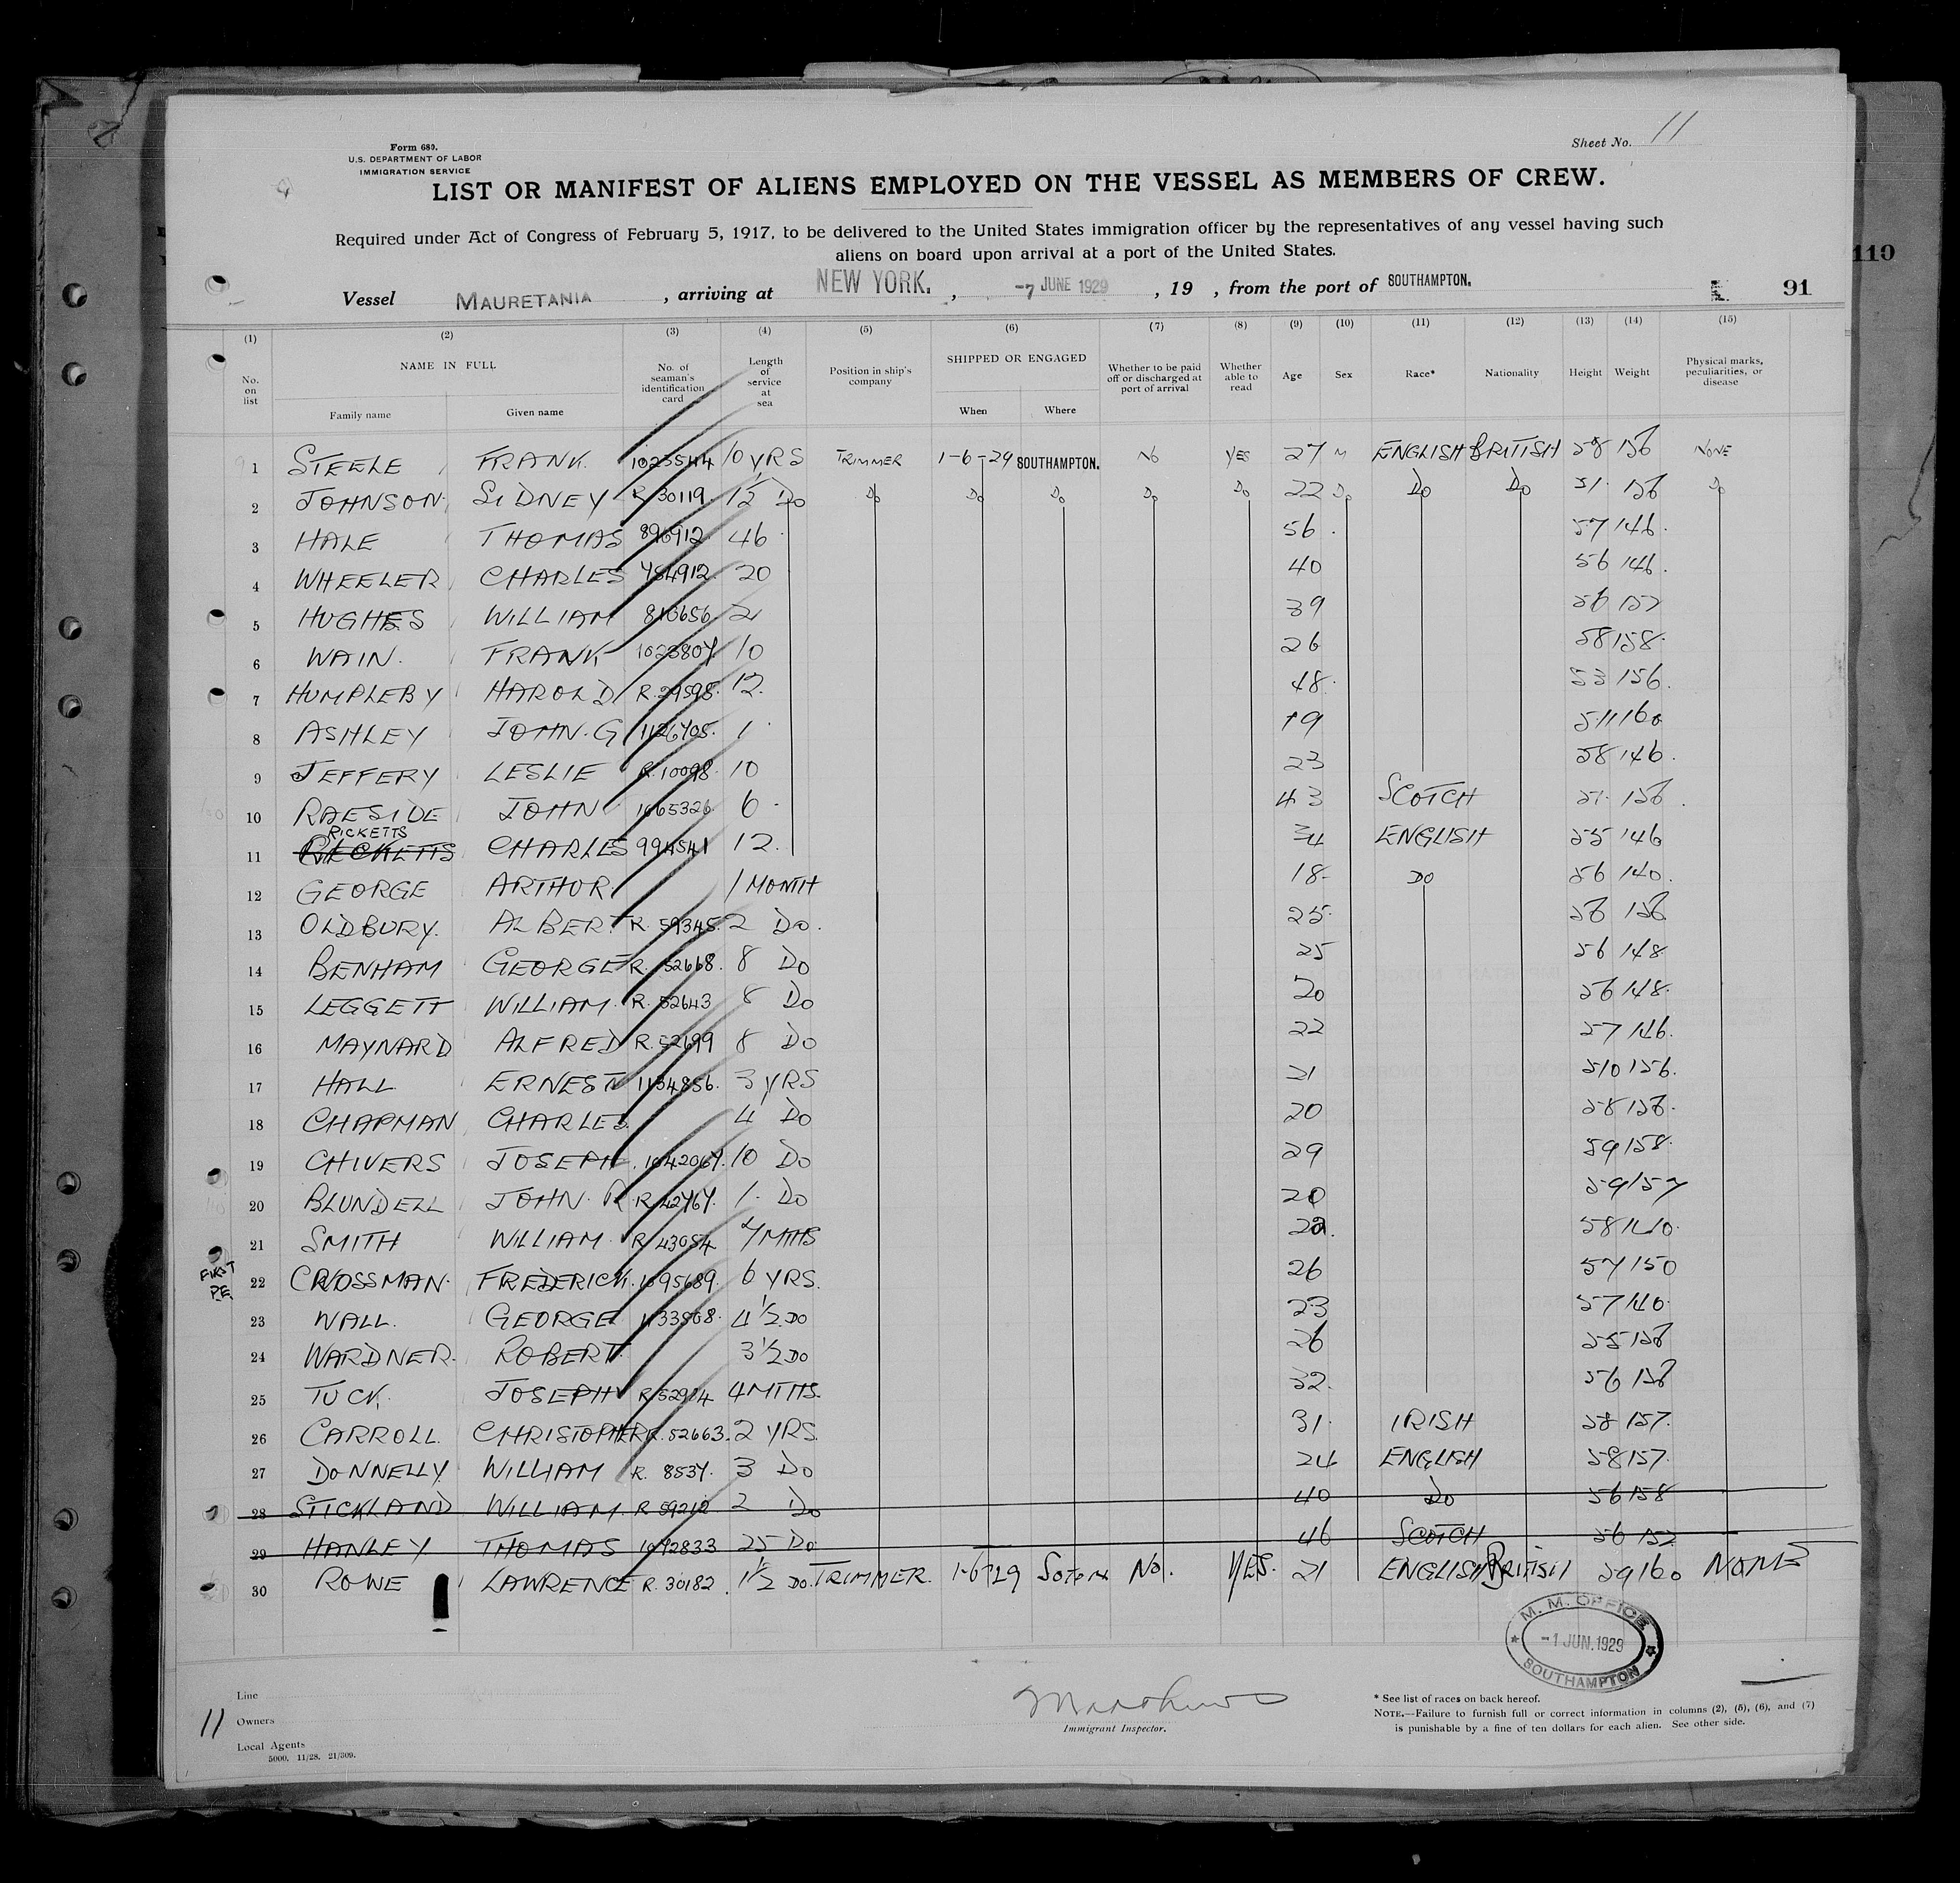 Sheet No. 11
Form 680.
U.S. DEPARTMENT OF LABOR
IMMIGRATION SERVICE
LIST OR MANIFEST OF ALIENS EMPLOYED ON THE VESSEL AS MEMBERS OF CREW.
Required under Act of Congress of February 5, 1917, to be delivered to the United States immigration officer by the representatives of any vessel having such
aliens on board upon arrival at a port of the United States.
110
Vessel MAURETANIA , arriving at NEW YORK. , -7 JUNE 1929 , 19 , from the port of SOUTHAMPTON. 91
(1) (2) (3) (4) (5) (6) (7) (8) (9) (10) (11) (12) (13) (14) (15)
No. on list NAME IN FULL Family name Given name No. of seaman's identification card Length of service at sea Position in ship's company SHIPPED OR ENGAGED When Where Whether to be paid off or discharged at port of arrival Whether able to read Age Sex Race* Nationality Height Weight Physical marks, peculiarities, or disease
1 STEELE FRANK. 1023544 10 YRS TRIMMER 1-6-29 SOUTHAMPTON. NO YES 27 M ENGLISH BRITISH 58 156 NONE
2 JOHNSON SIDNEY R 30119. 1½ DO DO DO DO DO DO 22 DO DO DO 51 156 DO
3 HALE THOMAS 896912 46 56 57 146.
4 WHEELER CHARLES 20 40 56 146.
5 HUGHES WILLIAM 39 56 157
6 WAIN. FRANK 10 26 58 158.
7 HUMPLEBY HAROLD R. 29598. 12. 48. 53 156.
8 ASHLEY JOHN. G 1 19 511 160
9 JEFFERY LESLIE R. 10098. 10 23 58 146.
10 RAESIDE JOHN 1065326 6 43 SCOTCH 156.
RICKETTS
11 RICKETTS CHARLES 994541 12. 34 ENGLISH 55 146
12 GEORGE ARTHUR 1 MONTH 18 DO 56 140.
13 OLDBURY. ALBERT R. 59345. 2 DO. 25. 56 156
14 BENHAM GEORGE R. 52668. 8 DO 25 56 148
15 LEGGETT WILLIAM. R. 52643 8 DO 20 56 148.
16 MAYNARD ALFRED R. 52699 8 DO 22 57 146.
17 HALL ERNEST 1134856. 3 YRS 21 510 156.
18 CHAPMAN CHARLES. 4 DO 20 58 156.
19 CHIVERS JOSEPH 1042067. 10 DO 29 59 158.
20 BLUNDELL JOHN. R R. 42767. 1. DO 20 59 157
21 SMITH WILLIAM. R 43054 7 MTHS 22. 58 140.
FIRST P.E.
22 CROSSMAN. FREDERICK. 1095689. 6 YRS. 26 57 150
23 WALL. GEORGE 4½ DO 23 57 140.
24 WARDNER. ROBERT. 3½ DO 26 55 156
25 TUCK. JOSEPH R 52914 4 MTHS. 32. 56 156
26 CARROLL. CHRISTOPHER R. 52663. 2 YRS. 31. IRISH 58 157.
27 DONNELLY WILLIAM R. 8537. 3 DO 24 ENGLISH 58 157.
28 STICKLAND WILLIAM. R 59212 2 DO 40 DO 56 158
29 HANLEY THOMAS 1042833 25 DO 46 SCOTCH 56 152
30 ROWE LAWRENCE R. 30182. 1½ DO. TRIMMER. 1-6-29 SOTON No. YES. 21 ENGLISH BRITISH 59 160 NONE
M. M. OFFICE
-1 JUN. 1929
SOUTHAMPTON
Line
Owners
Local Agents
5000. 11/28. 21/309.
11
Immigrant Inspector.
* See list of races on back hereof.
NOTE.—Failure to furnish full or correct information in columns (2), (5), (6), and (7)
is punishable by a fine of ten dollars for each alien. See other side.